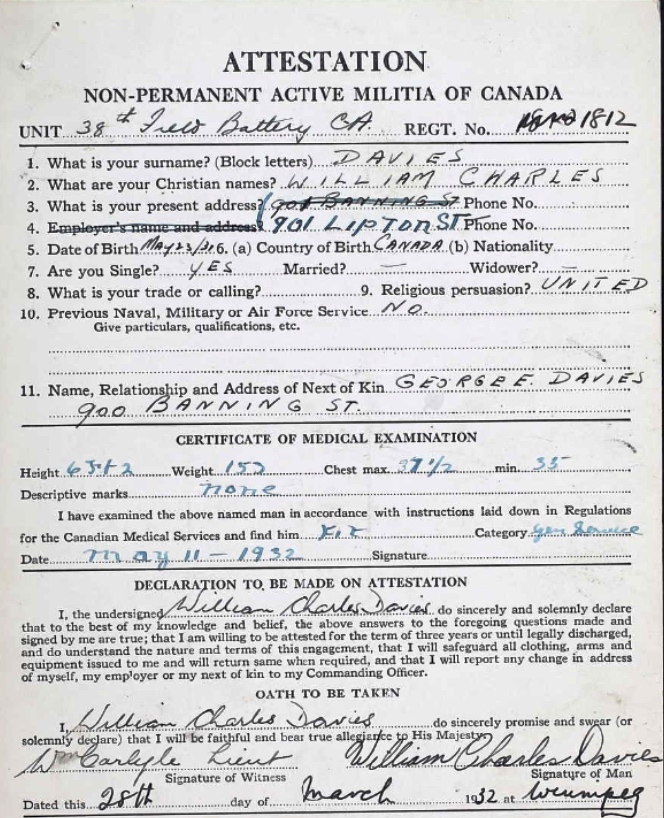 ATTESTATION
NON-PERMANENT ACTIVE MILITIA OF CANADA
UNIT 38th Field Battery CA. REGT. No. 1812
1. What is your surname? (Block letters) DAVIES
2. What are your Christian names? WILLIAM CHARLES
3. What is your present address? 901 BANNING ST Phone No.
4. Employer's name and address? 901 LIPTON ST Phone No.
5. Date of Birth May 23/ 6. (a) Country of Birth CANADA (b) Nationality
7. Are you Single? YES Married? — Widower? —
8. What is your trade or calling? 9. Religious persuasion? UNITED
10. Previous Naval, Military or Air Force Service NO.
Give particulars, qualifications, etc.
11. Name, Relationship and Address of Next of Kin GEORGE E. DAVIES
900 BANNING ST.
CERTIFICATE OF MEDICAL EXAMINATION
Height 6 ft 2 Weight 152 Chest max. 37 1/2 min. 35
Descriptive marks none
I have examined the above named man in accordance with instructions laid down in Regulations
for the Canadian Medical Services and find him Fit Category Gen Service
Date May 11 - 1932 Signature
DECLARATION TO BE MADE ON ATTESTATION
I, the undersigned William Charles Davies do sincerely and solemnly declare
that to the best of my knowledge and belief, the above answers to the foregoing questions made and
signed by me are true; that I am willing to be attested for the term of three years or until legally discharged,
and do understand the nature and terms of this engagement, that I will safeguard all clothing, arms and
equipment issued to me and will return same when required, and that I will report any change in address
of myself, my employer or my next of kin to my Commanding Officer.
OATH TO BE TAKEN
I, William Charles Davies do sincerely promise and swear (or
solemnly declare) that I will be faithful and bear true allegiance to His Majesty.
Wm Carlyle Lieut William Charles Davies
Signature of Witness Signature of Man
Dated this 28th day of March 1932 at Winnipeg